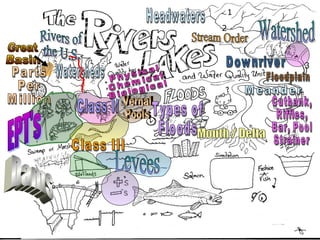 Headwaters
The
Rivers
Lakes
and Water Quality Unit
Rivers of
the U.S.
Stream Order
1
2
Watershed
Great
Basin
Parts
Per
Million
Watersheds
Water
Physical
Chemical
Biological
Downriver
Floodplain
Meander
FLOODS
Class V
Vernal
Pools
Types of
Floods
Cutbank,
Riffles,
Bar, Pool
Strainer
EPT's
Mouth / Delta
Class III
Swamp or Marsh
Levees
Dams
Wetlands
+'s
-'s
Salmon
Fish